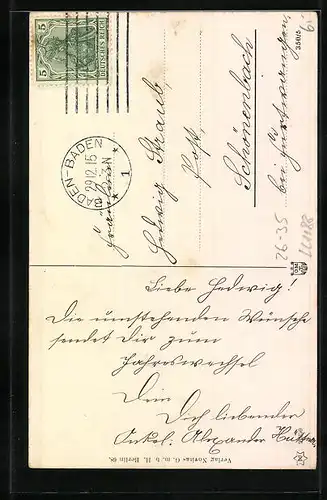 5 DEUTSCHES REICH 5
BADEN-BADEN
29.12.15
* 1 *
Fräulein
Hedwig Straub,
Post,
Schönenbach
bei Furtwangen
35615
26-35
Liebe Hedwig!
Die umstehenden Wünsche
sendet Dir zum
Jahreswechsel
Dein
Dich liebender
Onkel: Alexander
Verlag Novitas G. m. b. H. Berlin 68.